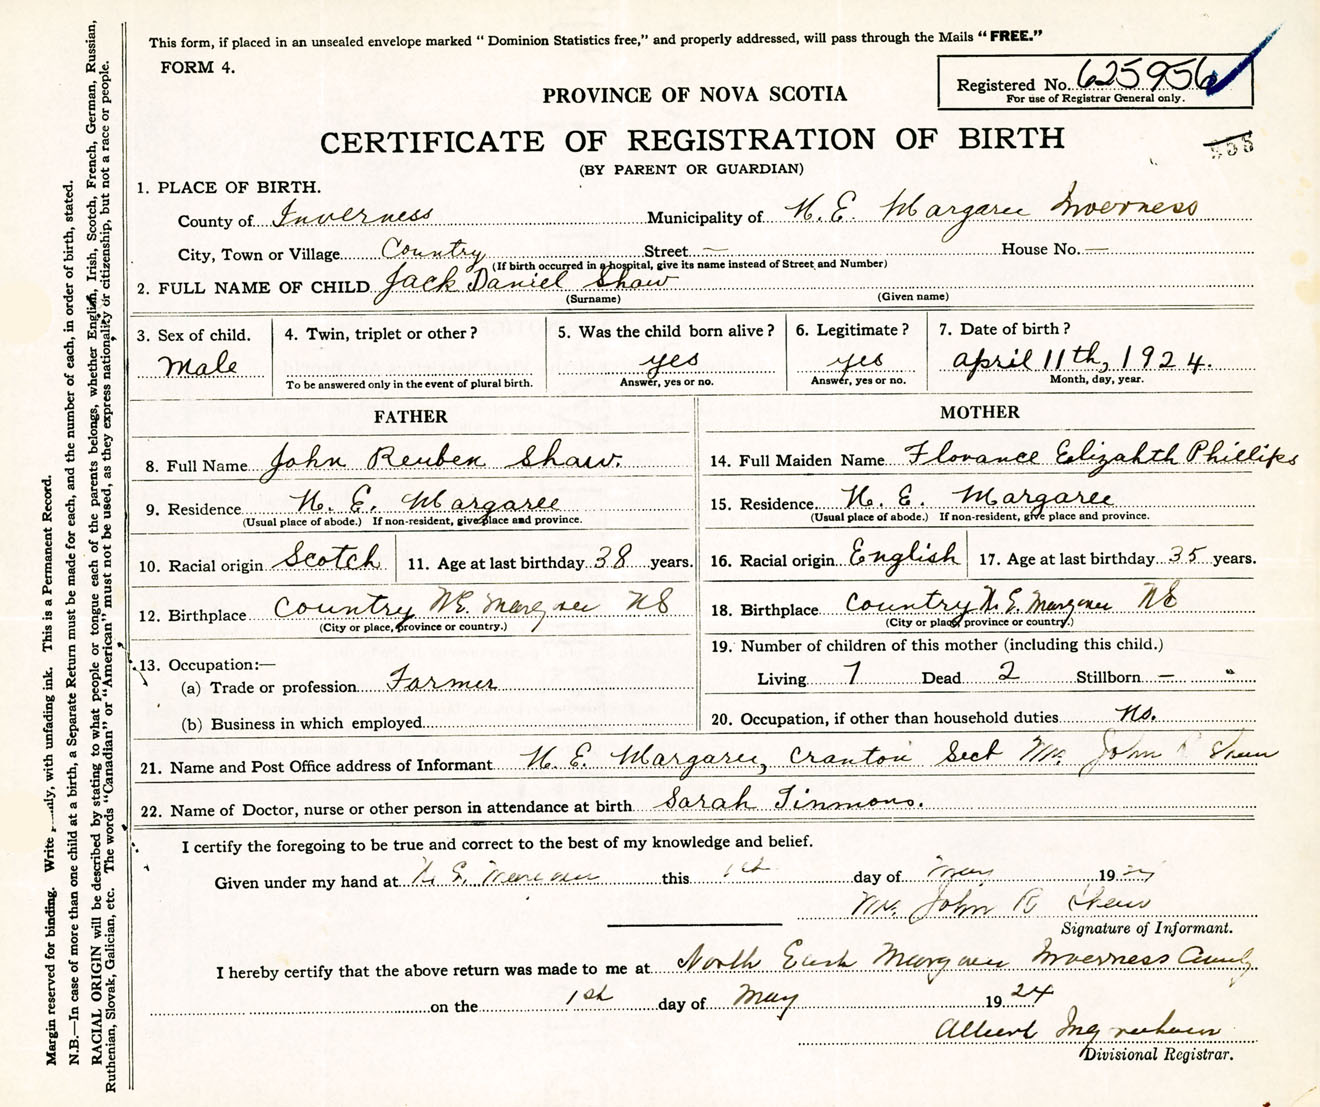 This form, if placed in an unsealed envelope marked "Dominion Statistics free," and properly addressed, will pass through the Mails "FREE."
FORM 4.
Registered No. 625956
For use of Registrar General only.
PROVINCE OF NOVA SCOTIA
CERTIFICATE OF REGISTRATION OF BIRTH
(BY PARENT OR GUARDIAN)
1. PLACE OF BIRTH.
County of Inverness Municipality of N. E. Margaree Inverness
City, Town or Village Country Street — House No. —
(If birth occurred in a hospital, give its name instead of Street and Number)
2. FULL NAME OF CHILD Jack Daniel Shaw
(Surname) (Given name)
3. Sex of child. 4. Twin, triplet or other? 5. Was the child born alive? 6. Legitimate? 7. Date of birth?
Male yes yes april 11th, 1924.
To be answered only in the event of plural birth. Answer, yes or no. Answer, yes or no. Month, day, year.
FATHER MOTHER
8. Full Name John Reuben Shaw. 14. Full Maiden Name Florance Elizahth Phillips
9. Residence N. E. Margaree 15. Residence N. E. Margaree
(Usual place of abode.) If non-resident, give place and province. (Usual place of abode.) If non-resident, give place and province.
10. Racial origin Scotch 11. Age at last birthday 38 years. 16. Racial origin English 17. Age at last birthday 35 years.
12. Birthplace Country N.E. Margaree NS 18. Birthplace Country N. E. Margaree NS
(City or place, province or country.) (City or place, province or country.)
19. Number of children of this mother (including this child.)
13. Occupation:—
(a) Trade or profession Farmer Living 7 Dead 2 Stillborn —
(b) Business in which employed 20. Occupation, if other than household duties no.
21. Name and Post Office address of Informant N. E. Margaree, Cranton Sect Mr. John R Shaw
22. Name of Doctor, nurse or other person in attendance at birth Sarah Timmons.
I certify the foregoing to be true and correct to the best of my knowledge and belief.
Given under my hand at N. E. Margaree this 1st day of May 19
Mr. John R Shaw
Signature of Informant.
I hereby certify that the above return was made to me at North East Margaree Inverness County
on the 1st day of May 1924
Albert Ingraham
Divisional Registrar.
Margin reserved for binding. Write with unfading ink. This is a Permanent Record.
N.B.—In case of more than one child at a birth, a Separate Return must be made for each, and the number of each, in order of birth, stated.
RACIAL ORIGIN will be described by stating to what people or tongue each of the parents belongs, whether English, Irish, Scotch, French, German, Russian,
Ruthenian, Slovak, Galician, etc. The words "Canadian" or "American" must not be used, as they express nationality or citizenship, but not a race or people.